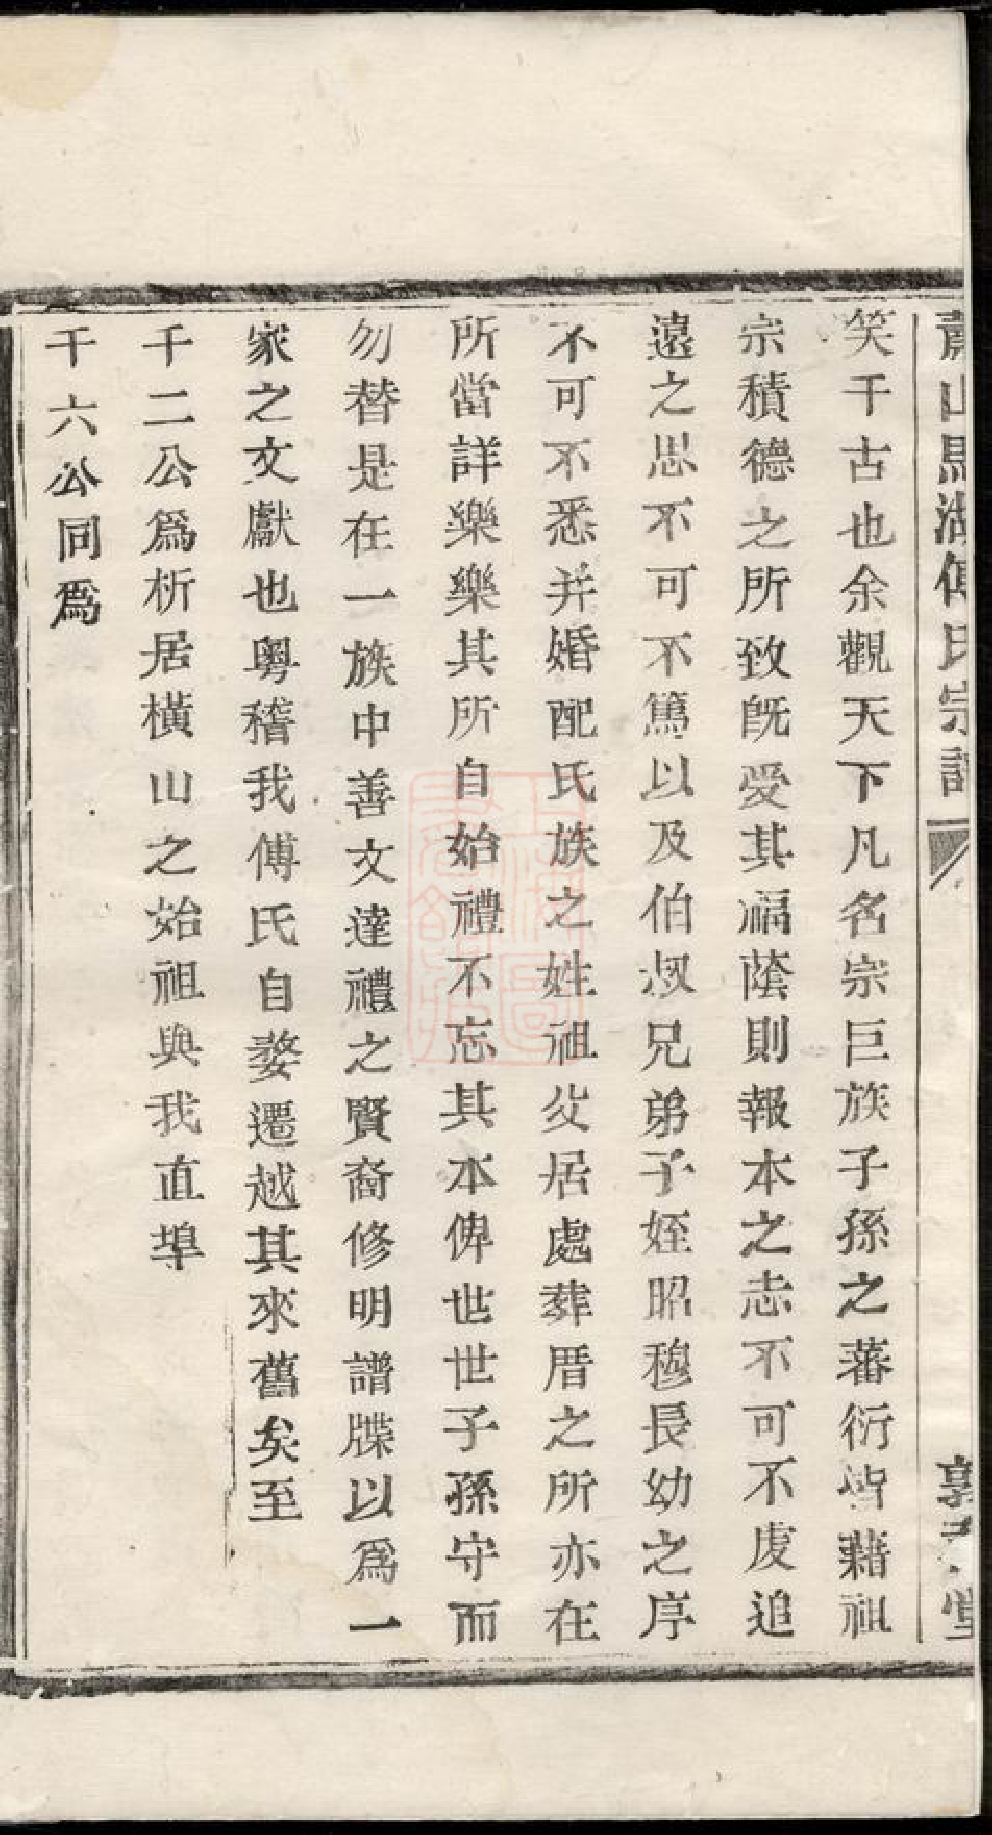 蕭山馬湖傅氏宗譜
笑千古也余觀天下凡名宗巨族子孫之蕃衍皆藉祖
宗積德之所致既受其福蔭則報本之志不可不虔追
遠之思不可不篤以及伯叔兄弟子姪昭穆長幼之序
不可不悉并婚配氏族之姓祖父居處葬厝之所亦在
所當詳樂樂其所自始禮不忘其本俾世世子孫守而
勿替是在一族中善文達禮之賢裔修明譜牒以爲一
家之文獻也粤稽我傅氏自婺遷越其來舊矣至
千二公爲析居橫山之始祖與我直埠
千六公同爲
上海圖書館藏